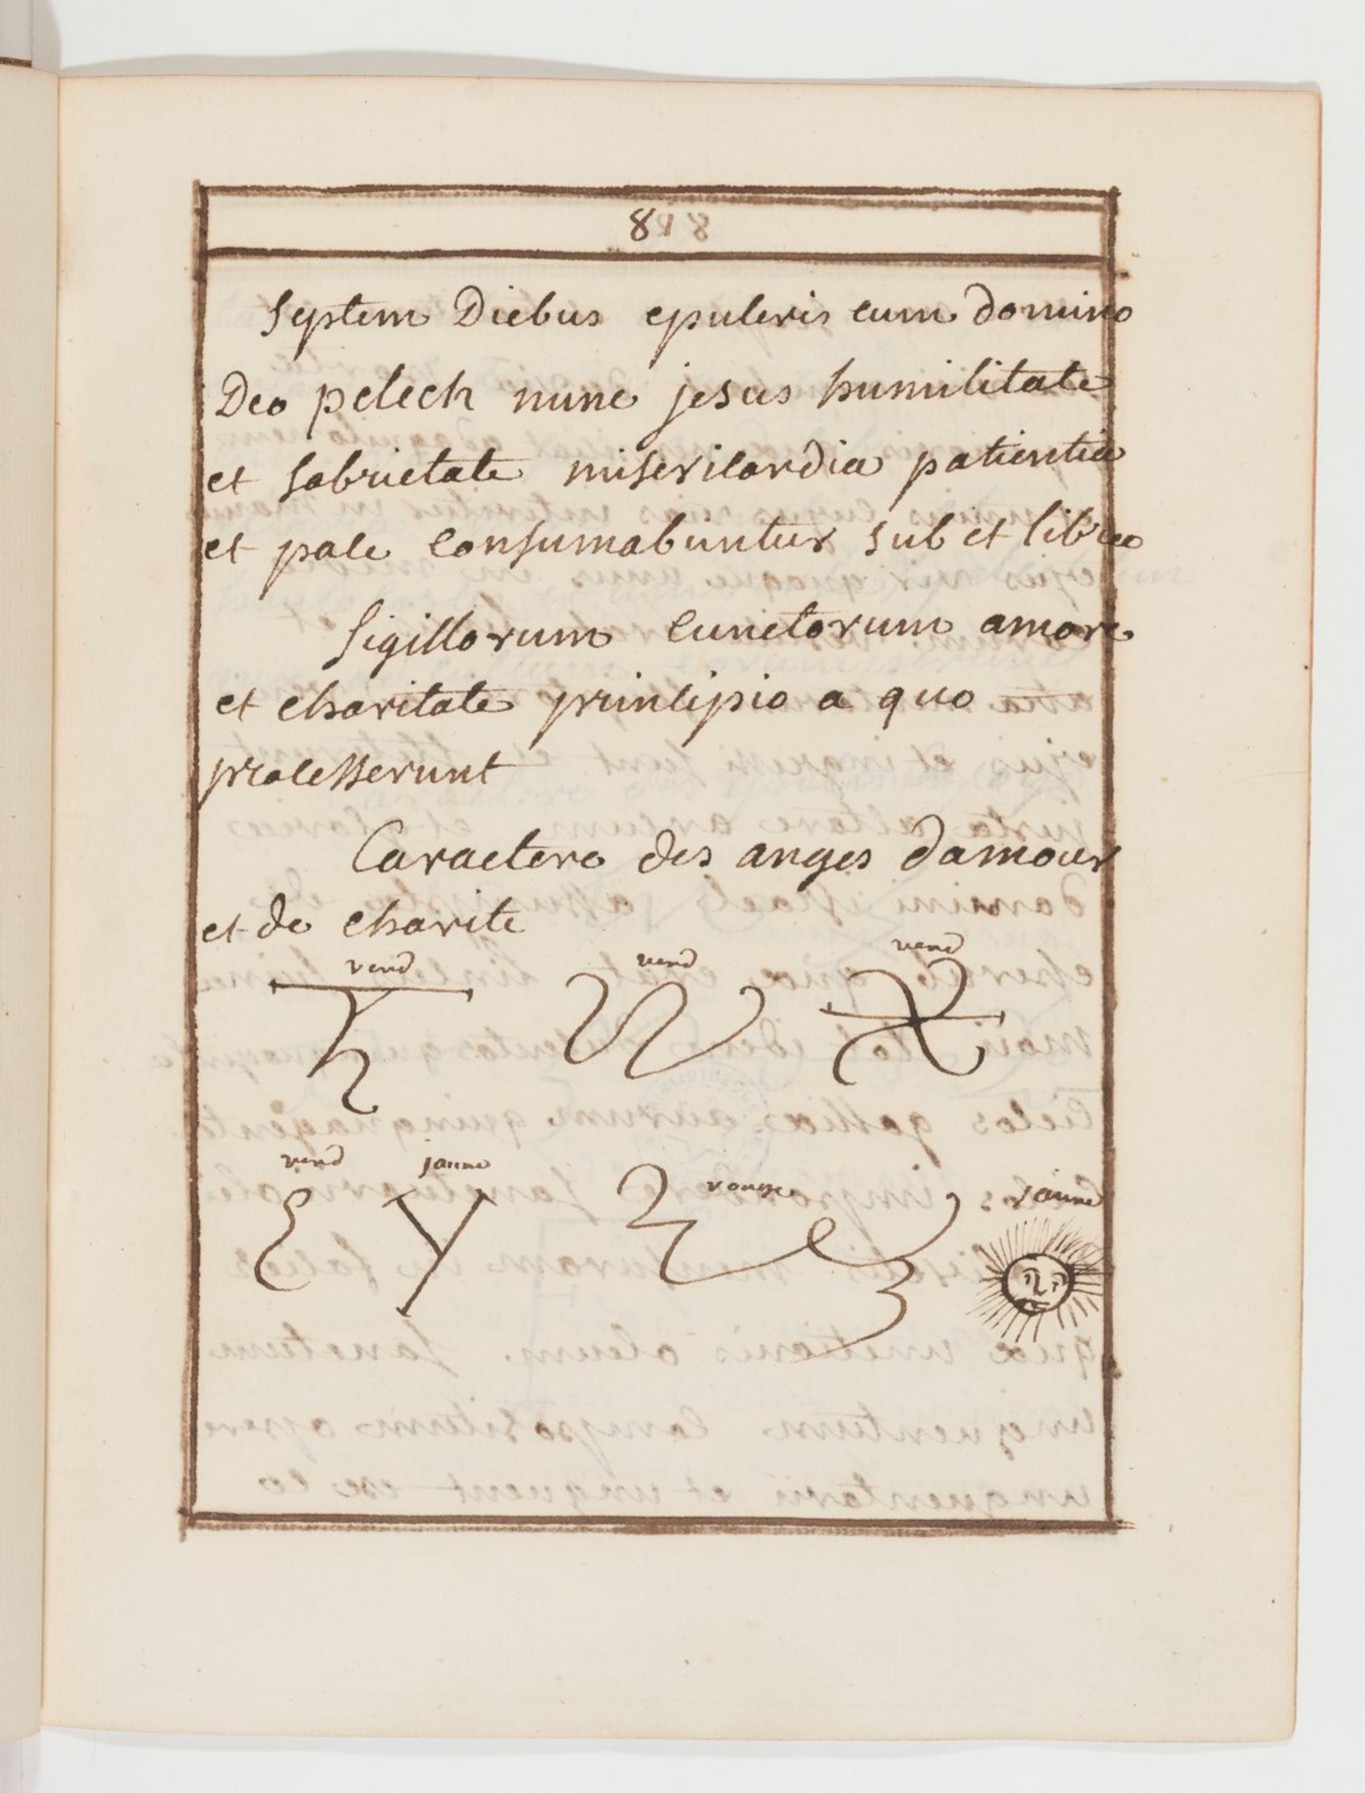 818
Septem Diebus epuleris cum domino
Deo pelech nunc jesus humilitate
et sobrietate misericordia patientia
et pace consumabuntur sub et libreo
Sigillorum cunctorum amore
et charitate principio a quo
processerunt
Caractere des anges damour
et de charite
verd verd verd
verd jaune rouge jaune